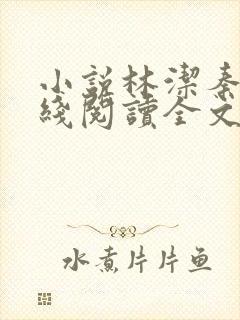 小説林潔秦
綫閱讀全文
水煮片片鱼